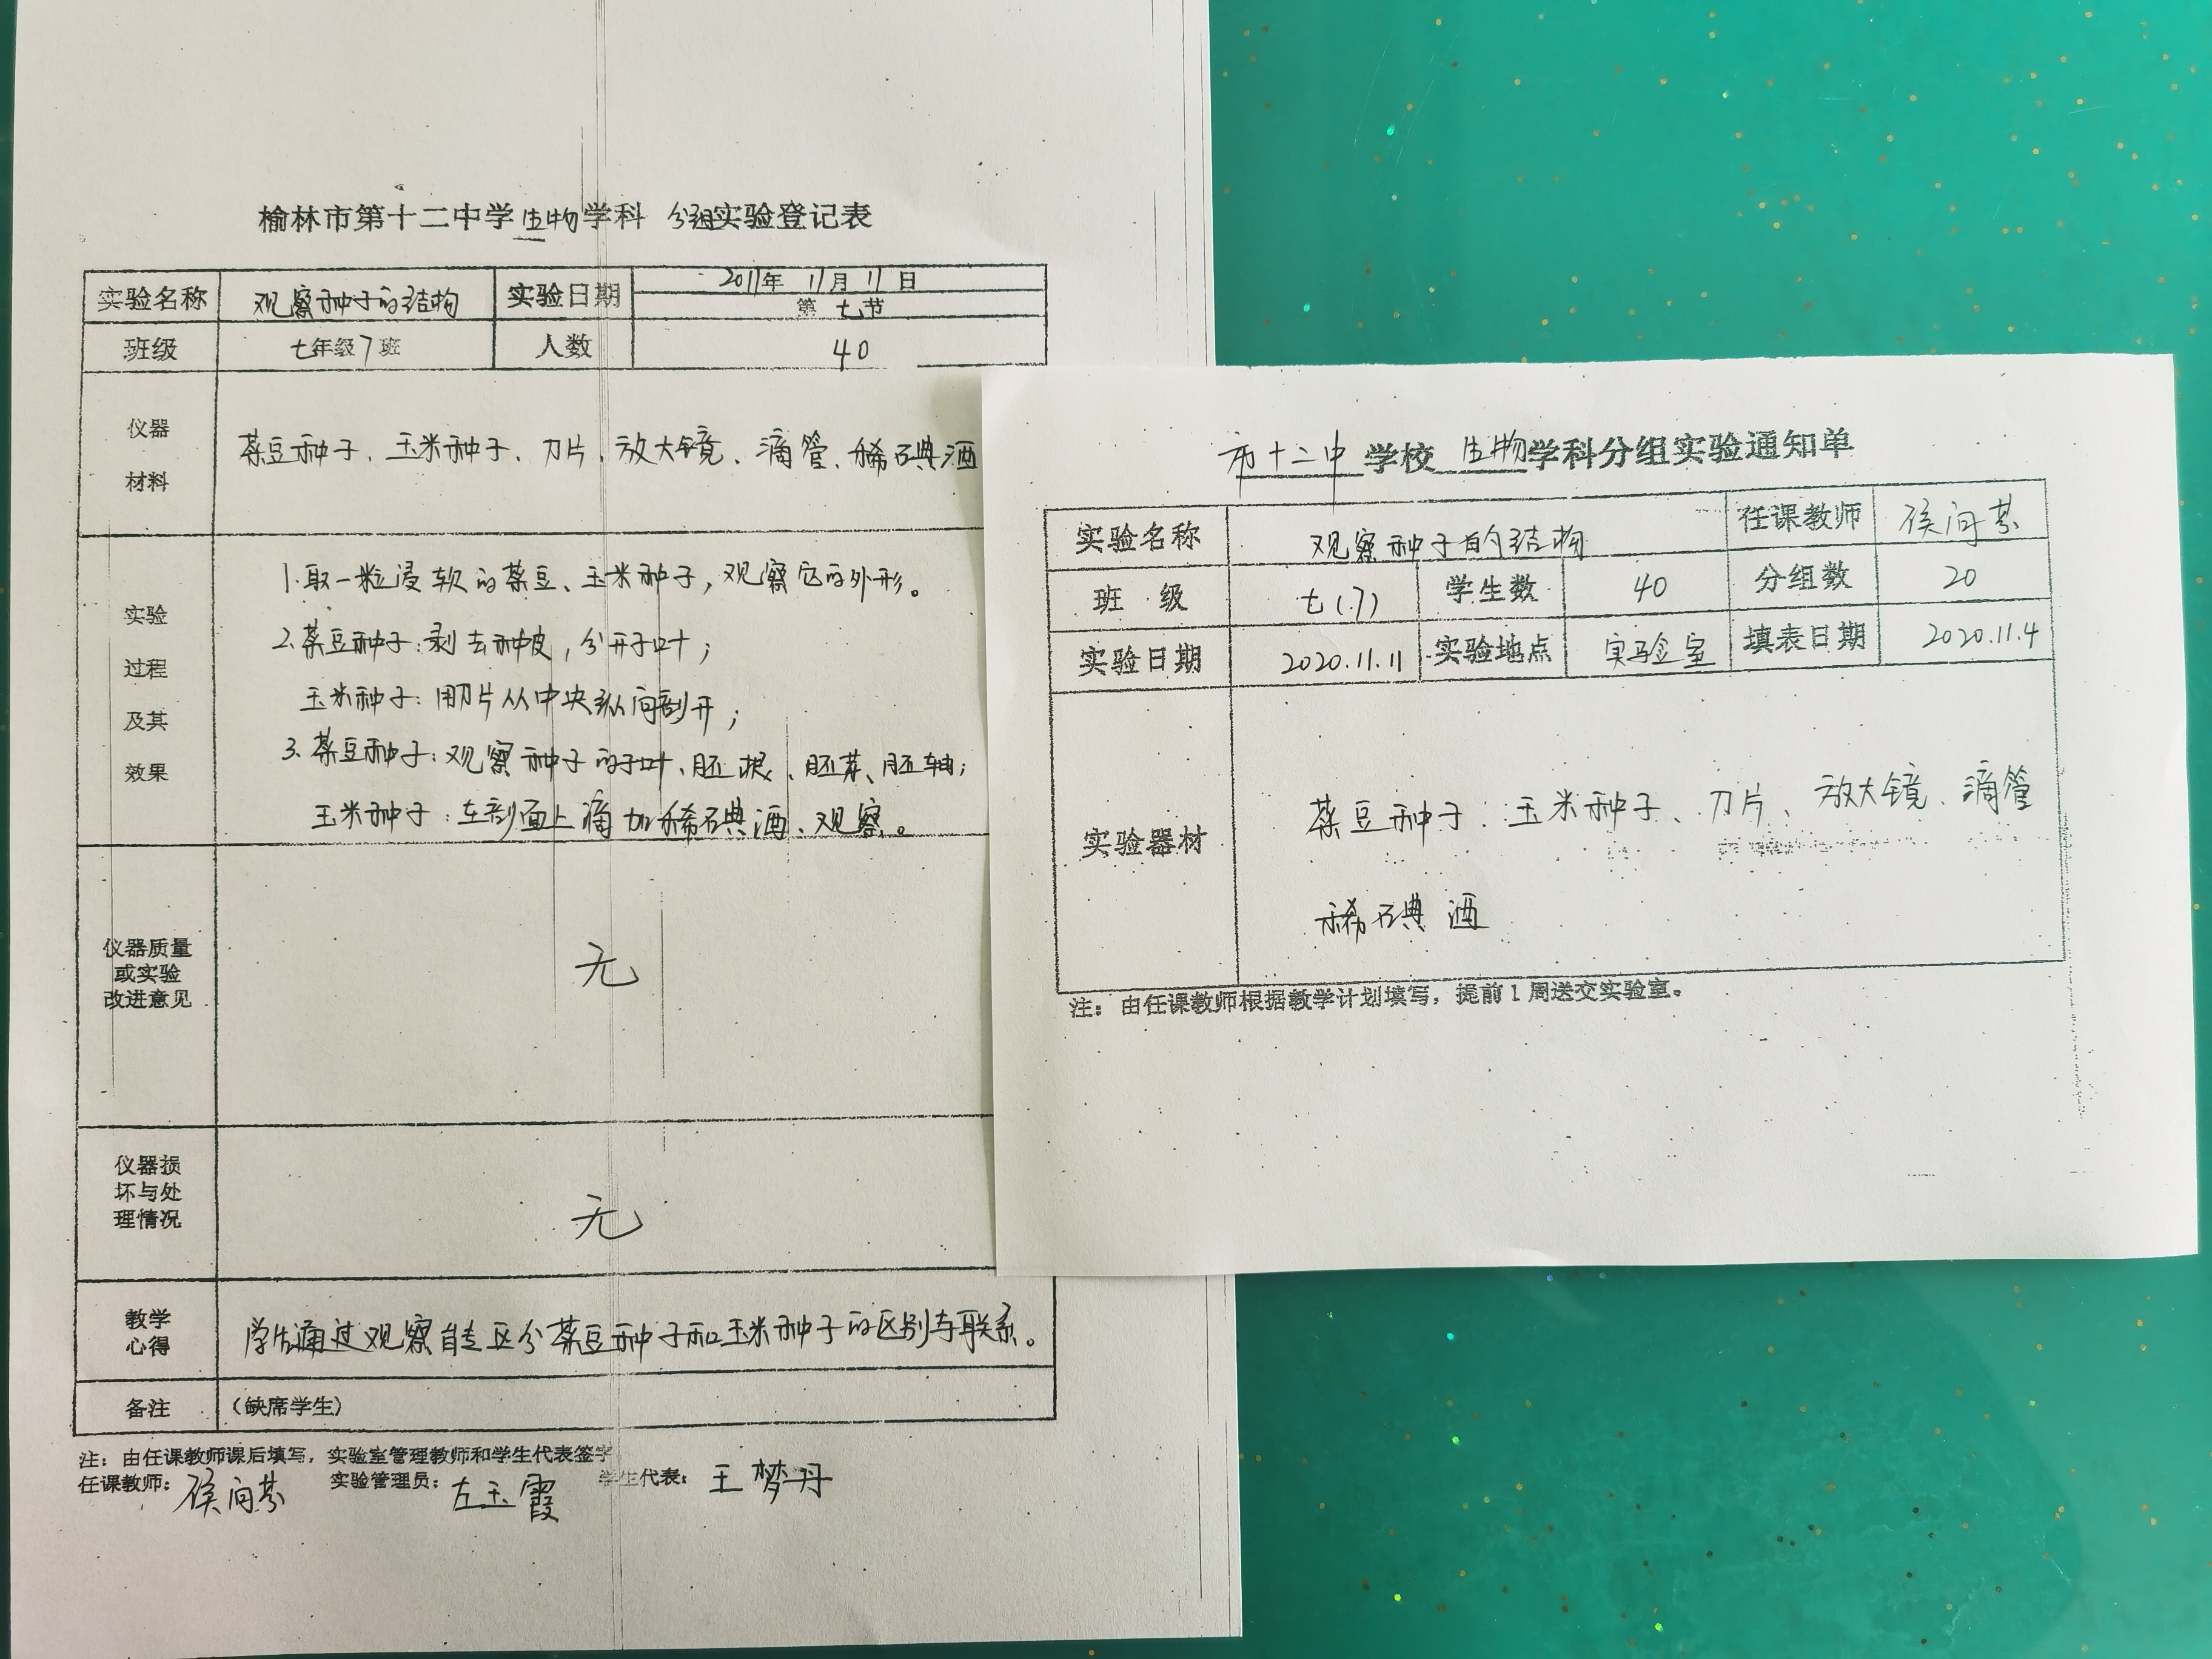 榆林市第十二中学生物学科 分组实验登记表
实验名称 观察种子的结构 实验日期 2011年 11月 11日
第 七 节
班级 七年级7班 人数 40
仪器
材料
菜豆种子、玉米种子、刀片、放大镜、滴管、稀碘酒
实验
过程
及其
效果
1.取一粒浸软的菜豆、玉米种子,观察它的外形。
2.菜豆种子:剥去种皮,分开子叶;
玉米种子:用刀片从中央纵向剖开;
3.菜豆种子:观察种子的子叶、胚根、胚芽、胚轴;
玉米种子:在剖面上滴加稀碘酒、观察。
仪器质量
或实验
改进意见
无
仪器损
坏与处
理情况
无
教学
心得
学生通过观察能区分菜豆种子和玉米种子的区别与联系。
备注 (缺席学生)
注:由任课教师课后填写,实验室管理教师和学生代表签字
任课教师: 侯向 实验管理员: 左玉霞 学生代表: 王梦丹
市十二中 学校 生物学科分组实验通知单
实验名称 观察种子的结构 任课教师 侯向
班 级 七(7) 学生数 40 分组数 20
实验日期 2020.11.11 实验地点 实验室 填表日期 2020.11.4
实验器材
菜豆种子、玉米种子、刀片、放大镜、滴管
稀碘酒
注:由任课教师根据教学计划填写,提前1周送交实验室。